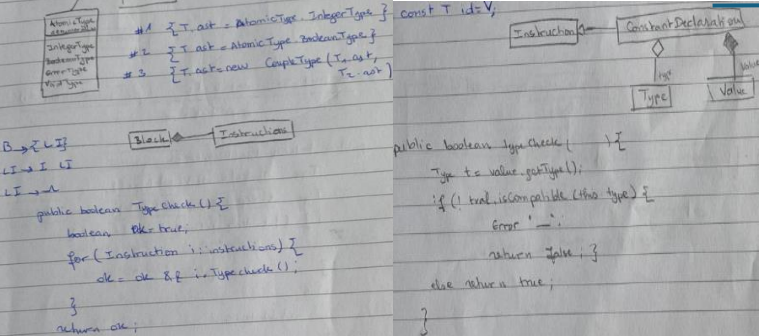 AtomicType
IntegerType
BooleanType
ErrorType
VoidType
#1 {T.ast = AtomicType.IntegerType }
#2 {T.ast = AtomicType.BooleanType}
#3 {T.ast = new CoupleType (T1.ast,
T2.ast)
B → {LI}
LI → I LI
LI → Λ
Block
Instructions
public boolean TypeCheck () {
boolean ok = true;
for (Instruction i : instructions) {
ok = ok && i.Typecheck ();
}
return ok;
const T id = V;
Instruction
ConstantDeclaration
type
Value
Type
Value
public boolean typeCheck ( ) {
Type t = value.getType();
if (! isCompatible (this type) {
Error "—";
return false; }
else return true;
}